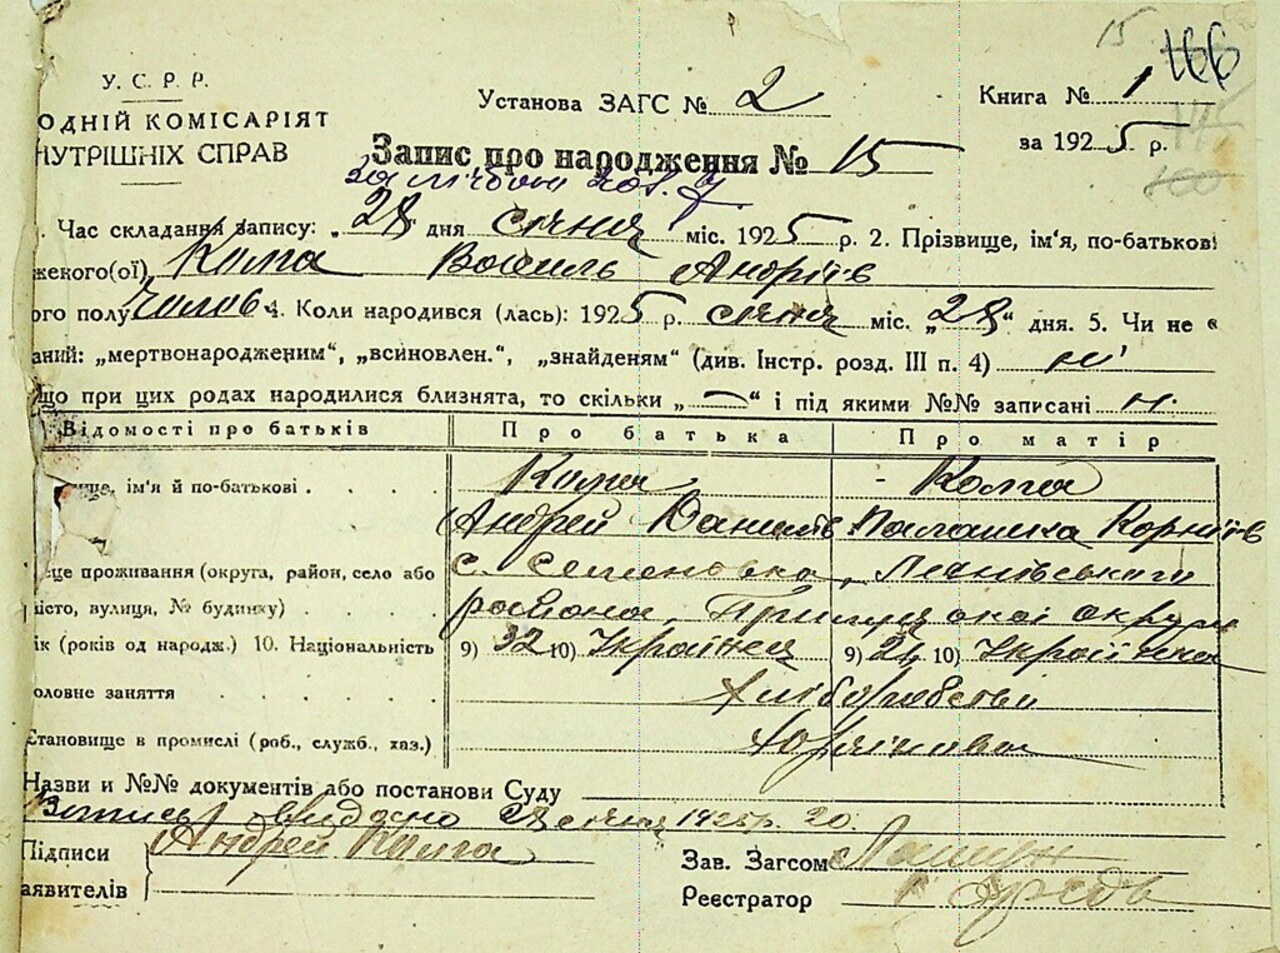 15 166
У. С. Р. Р.
Установа ЗАГС № 2
Книга № 1
ОДНІЙ КОМІСАРІЯТ
НУТРІШНІХ СПРАВ
за 1925 р.
Запис про народження № 15
. Час складання запису: „28" дня січня міс. 1925 р. 2. Прізвище, ім'я, по-батькові
жекого(ої) Кома Василь Андріїв
ого полу Чолов 4. Коли народився (лась): 1925 р. січня міс. „28" дня. 5. Чи не є
аний: „мертвонародженим", „всиновлен.", „знайденям" (див. Інстр. розд. III п. 4) ні
що при цих родах народилися близнята, то скільки „—" і під якими №№ записані н.
Відомості про батьків Про батька Про матір
ище, ім'я й по-батькові . . . . Кома - Кома
Андрей Данилів Палашка Корніїв
сце проживання (округа, район, село або с. Семеновка,
місто, вулиця, № будинку) . . . . района, Прилуцької округи
ік (років од народж.) 10. Національність 9) 32 10) Українец 9) 21 10) Українка
оловне заняття . . . . Хліборобство
Становище в промислі (роб., служб., хаз.)
Назви и №№ документів або постанови Суду
видано 1925 р. 20.
Підписи Андрей Кома
аявителів
Зав. Загсом
Реєстратор